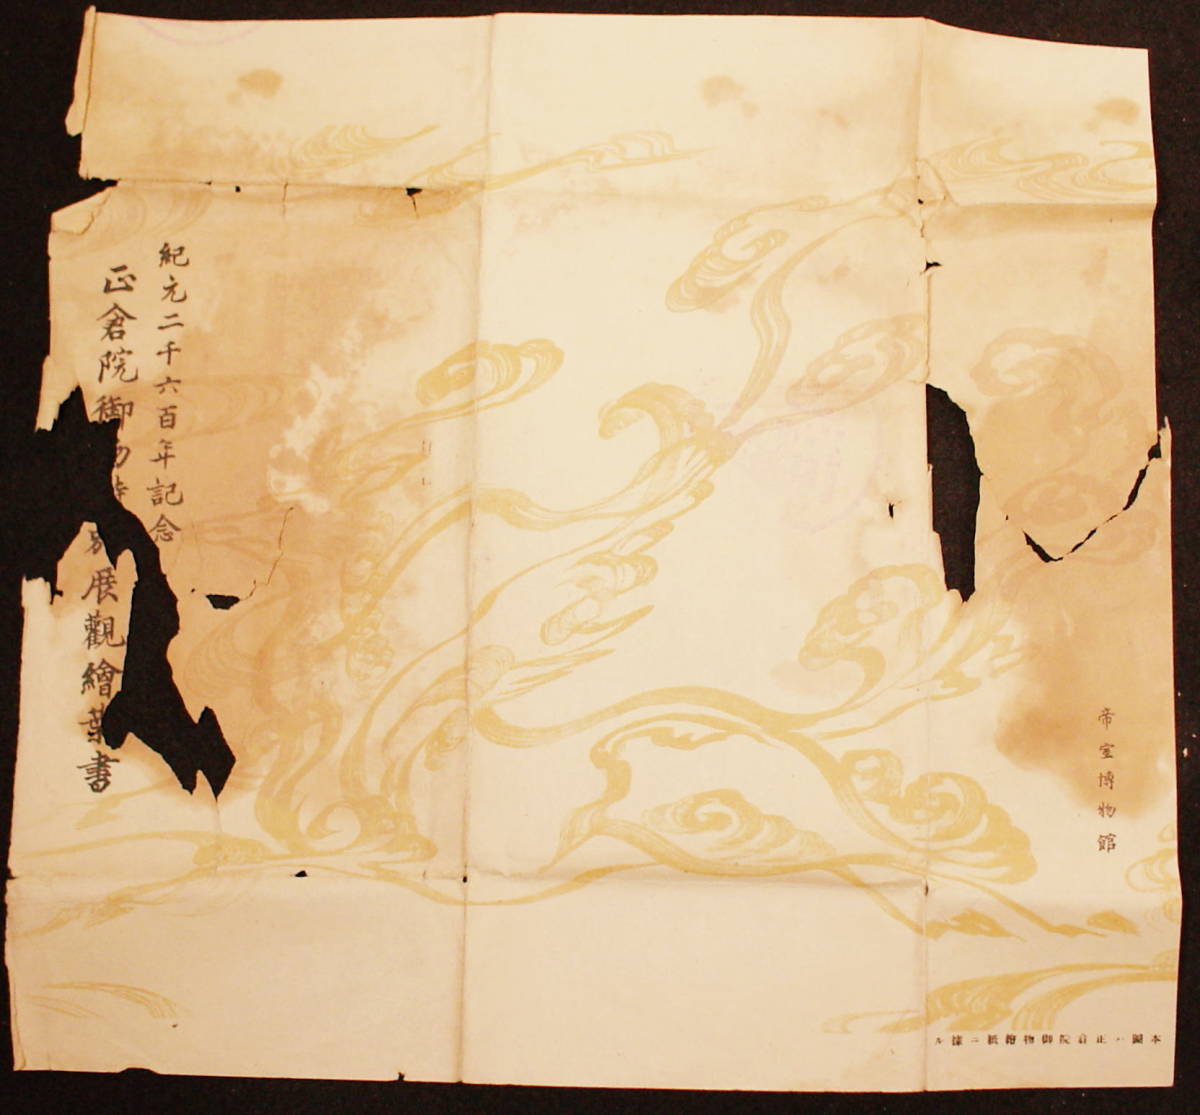 帝室博物館
紀元二千六百年記念
正倉院御物特別展觀繪葉書
本圖ハ正倉院御物繪紙ニ據ル